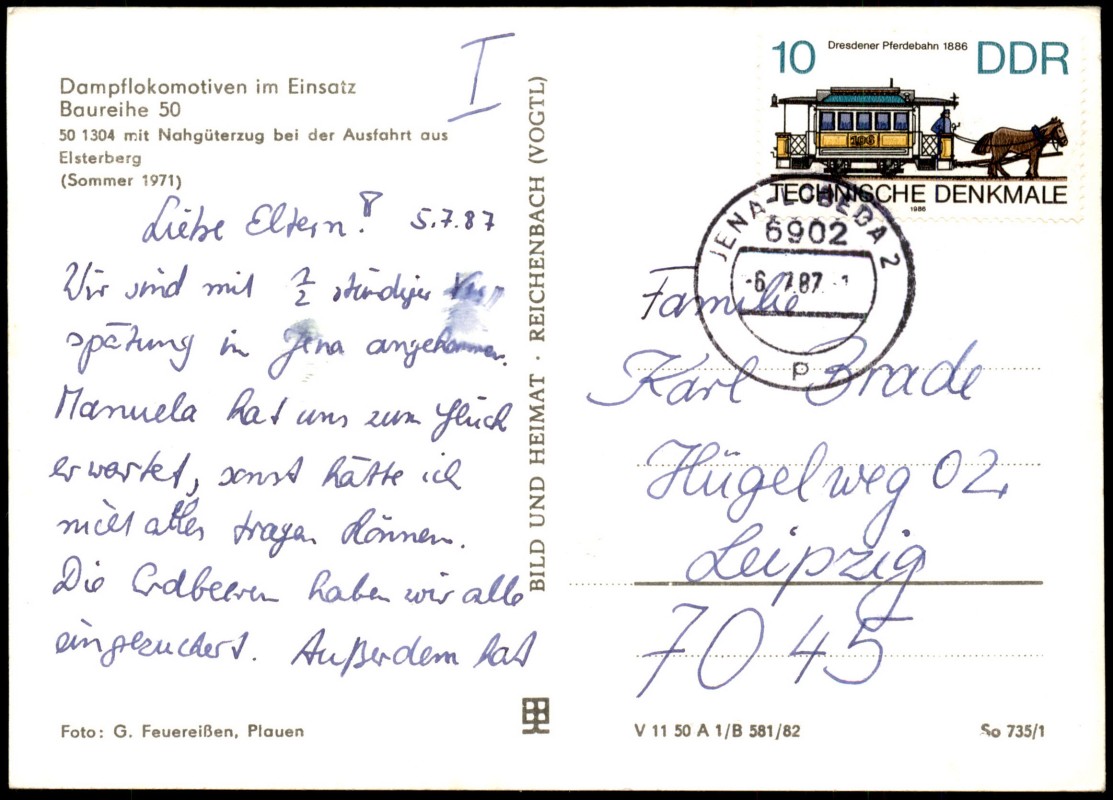 I
Dampflokomotiven im Einsatz
Baureihe 50
50 1304 mit Nahgüterzug bei der Ausfahrt aus
Elsterberg
(Sommer 1971)
Liebe Eltern! 5.7.87
Wir sind mit 1/2 stündiger Ver
spätung in Jena angekommen.
Manuela hat uns zum Glück
erwartet, sonst hätte ich
nicht alles tragen können.
Die Erdbeeren haben wir alle
eingezuckert. Außerdem hat
Foto: G. Feuereißen, Plauen
BILD UND HEIMAT · REICHENBACH (VOGTL)
10 Dresdener Pferdebahn 1886 DDR
106
TECHNISCHE DENKMALE
1986
JENA-LOBEDA 2
6902
-6.7.87
P
Familie
Karl Brade
Hügelweg 02
Leipzig
7045
V 11 50 A 1/B 581/82
So 735/1